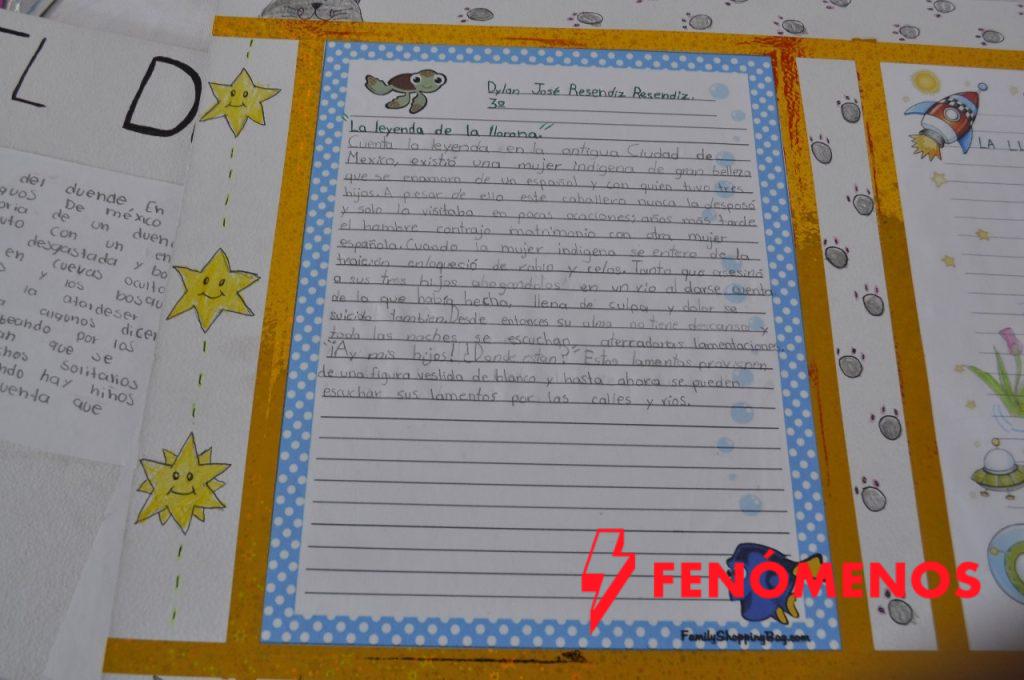 EL D
del duende En
De méxico
de un duen
con un en
desgastada y bo
en cuevas oculto
y los bosqu
la atardeser
algunos dicen
por los
que se
solitarios
hay niños
cuenta que
Dylan José Resendiz Resendiz.
3º
"La leyenda de la llorona."
Cuenta la leyenda en la antigua Ciudad de
Mexico, existió una mujer indigena de gran belleza
que se enamoro de un español y con quien tuvo tres
hijos. A pesar de ello este caballero nunca la desposó
y solo la visitaba en pocas ocaciones; años más tarde
el hombre contrajo matrimonio con otra mujer
española. Cuando la mujer indigena se entero de la
traición enloqueció de rabia y celos. Tanto que asesinó
a sus tres hijos ahogandolos en un río al darse cuenta
de lo que había hecho, llena de culpa y dolor se
suicidó tambien. Desde entonces su alma no tiene descanso y
todo las noches se escuchan aterradoras lamentaciones.
"¡Ay mis hijos! ¿Donde estan?" Estos lamentos provienen
de una figura vestida de blanco y hasta ahora se pueden
escuchar sus lamentos por las calles y rios.
FamilyShoppingBag.com
LA LL
FENÓMENOS